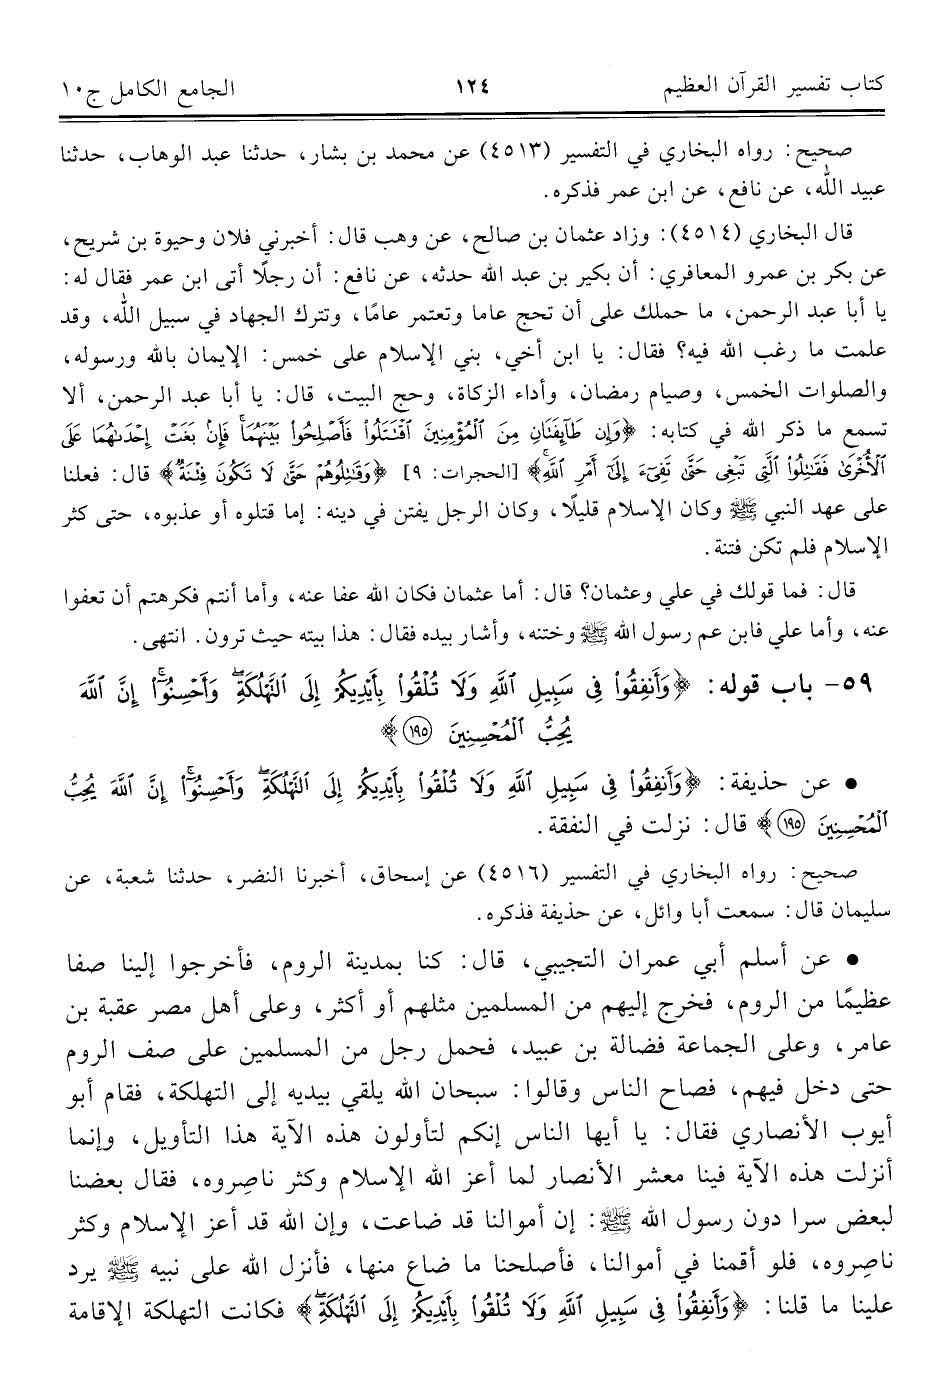 كتاب تفسير القرآن العظيم ١٢٤ الجامع الكامل ج١٠
صحيح: رواه البخاري في التفسير (٤٥١٣) عن محمد بن بشار، حدثنا عبد الوهاب، حدثنا
عبيد الله، عن نافع، عن ابن عمر فذكره.
قال البخاري (٤٥١٤): وزاد عثمان بن صالح، عن وهب قال: أخبرني فلان وحيوة بن شريح،
عن بكر بن عمرو المعافري: أن بكير بن عبد الله حدثه، عن نافع: أن رجلًا أتى ابن عمر فقال له:
يا أبا عبد الرحمن، ما حملك على أن تحج عاما وتعتمر عامًا، وتترك الجهاد في سبيل الله، وقد
علمت ما رغب الله فيه؟ فقال: يا ابن أخي، بني الإسلام على خمس: الإيمان بالله ورسوله،
والصلوات الخمس، وصيام رمضان، وأداء الزكاة، وحج البيت، قال: يا أبا عبد الرحمن، ألا
تسمع ما ذكر الله في كتابه: ﴿وَإِن طَآئِفَتَانِ مِنَ ٱلْمُؤْمِنِينَ ٱقْتَتَلُوا۟ فَأَصْلِحُوا۟ بَيْنَهُمَا ۖ فَإِنۢ بَغَتْ إِحْدَىٰهُمَا عَلَى
ٱلْأُخْرَىٰ فَقَٰتِلُوا۟ ٱلَّتِى تَبْغِى حَتَّىٰ تَفِىٓءَ إِلَىٰٓ أَمْرِ ٱللَّهِ﴾ [الحجرات: ٩] ﴿وَقَٰتِلُوهُمْ حَتَّىٰ لَا تَكُونَ فِتْنَةٌ﴾ قال: فعلنا
على عهد النبي ﷺ وكان الإسلام قليلًا، وكان الرجل يفتن في دينه: إما قتلوه أو عذبوه، حتى كثر
الإسلام فلم تكن فتنة.
قال: فما قولك في علي وعثمان؟ قال: أما عثمان فكان الله عفا عنه، وأما أنتم فكرهتم أن تعفوا
عنه، وأما علي فابن عم رسول الله ﷺ وختنه، وأشار بيده فقال: هذا بيته حيث ترون. انتهى.
٥٩- باب قوله: ﴿وَأَنفِقُوا۟ فِى سَبِيلِ ٱللَّهِ وَلَا تُلْقُوا۟ بِأَيْدِيكُمْ إِلَى ٱلتَّهْلُكَةِ ۛ وَأَحْسِنُوٓا۟ ۛ إِنَّ ٱللَّهَ
يُحِبُّ ٱلْمُحْسِنِينَ ١٩٥﴾
• عن حذيفة: ﴿وَأَنفِقُوا۟ فِى سَبِيلِ ٱللَّهِ وَلَا تُلْقُوا۟ بِأَيْدِيكُمْ إِلَى ٱلتَّهْلُكَةِ ۛ وَأَحْسِنُوٓا۟ ۛ إِنَّ ٱللَّهَ يُحِبُّ
ٱلْمُحْسِنِينَ ١٩٥﴾ قال: نزلت في النفقة.
صحيح: رواه البخاري في التفسير (٤٥١٦) عن إسحاق، أخبرنا النضر، حدثنا شعبة، عن
سليمان قال: سمعت أبا وائل، عن حذيفة فذكره.
• عن أسلم أبي عمران التجيبي، قال: كنا بمدينة الروم، فأخرجوا إلينا صفا
عظيمًا من الروم، فخرج إليهم من المسلمين مثلهم أو أكثر، وعلى أهل مصر عقبة بن
عامر، وعلى الجماعة فضالة بن عبيد، فحمل رجل من المسلمين على صف الروم
حتى دخل فيهم، فصاح الناس وقالوا: سبحان الله يلقي بيديه إلى التهلكة، فقام أبو
أيوب الأنصاري فقال: يا أيها الناس إنكم لتأولون هذه الآية هذا التأويل، وإنما
أنزلت هذه الآية فينا معشر الأنصار لما أعز الله الإسلام وكثر ناصِروه، فقال بعضنا
لبعض سرا دون رسول الله ﷺ: إن أموالنا قد ضاعت، وإن الله قد أعز الإسلام وكثر
ناصِروه، فلو أقمنا في أموالنا، فأصلحنا ما ضاع منها، فأنزل الله على نبيه ﷺ يرد
علينا ما قلنا: ﴿وَأَنفِقُوا۟ فِى سَبِيلِ ٱللَّهِ وَلَا تُلْقُوا۟ بِأَيْدِيكُمْ إِلَى ٱلتَّهْلُكَةِ﴾ فكانت التهلكة الإقامة